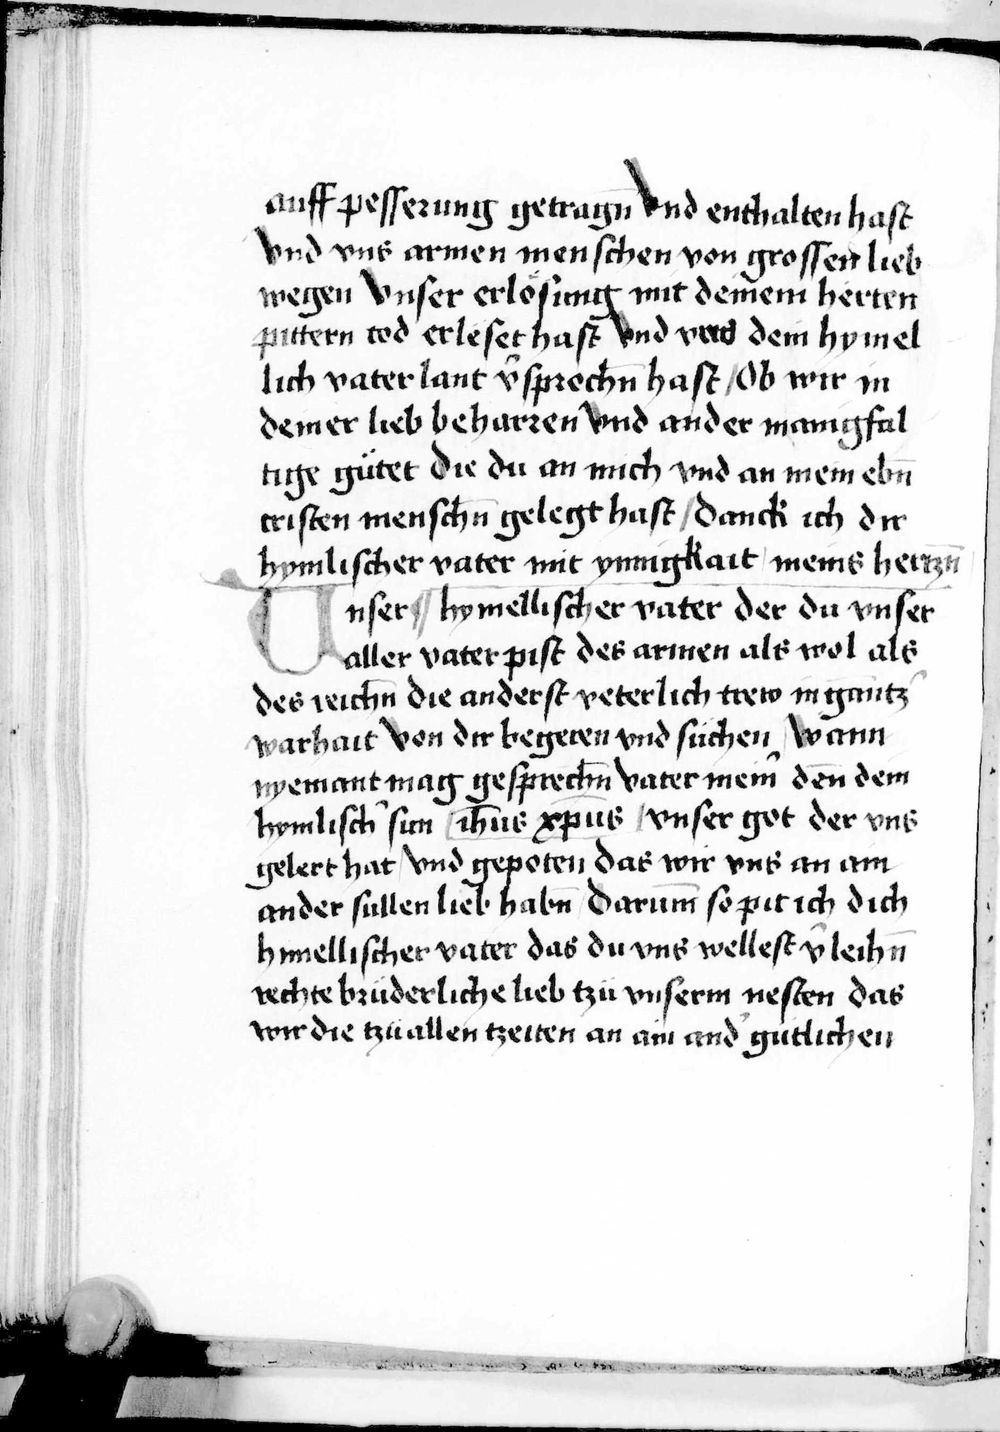 auff pesserung getragn̄ Vnd enthalten hast
Vnd vns armen menschen von grossen lieb
wegen Vnser erlösung mit deinem herten
pittern tod erleset hast Vnd vns dein hymel
lich vaterlant v̄sprochn̄ hast / Ob wir in
deiner lieb beharren Vnd ander manigfal
tige gütet Die du an mich vnd an mein ebn̄
cristen menschn̄ gelegt hast / Danck ich dir
hymlischer vater mit ynnigkait meins hertzn̄
Unser hymellischer vater der du vnser
aller vater pist des armen als wol als
des reichn̄ die anderst veterlich trew in gantz̾
warhait Von dir begeren vnd suchen Wann
nyemant mag gesprechn̄ Vater mein̾ den̄ dein
hymlisch̾ sun ih̄us xp̄us / vnser got der vns
gelert hat Vnd gepoten das wir vns an ain
ander sullen lieb habn̄ Darum̄ so pit ich dich
himellischer vater das du vns wellest v̄leihn̄
rechte brüderliche lieb tzü vnserm nesten das
wir die tzü allen tzeiten an ain and̾ gütlichen